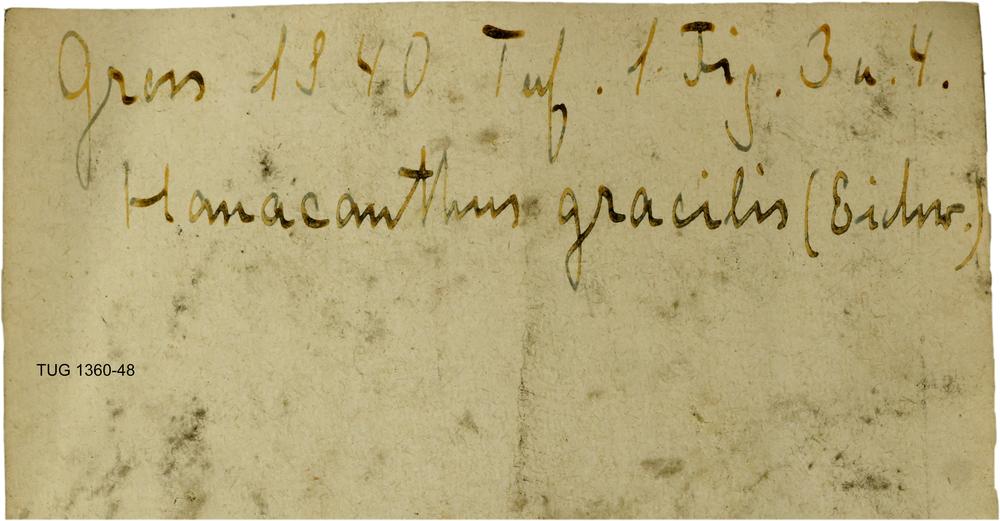 Gross 1940 Taf. 1. Fig. 3 u. 4.
Hanacanthus gracilis (Eichw.)
TUG 1360-48